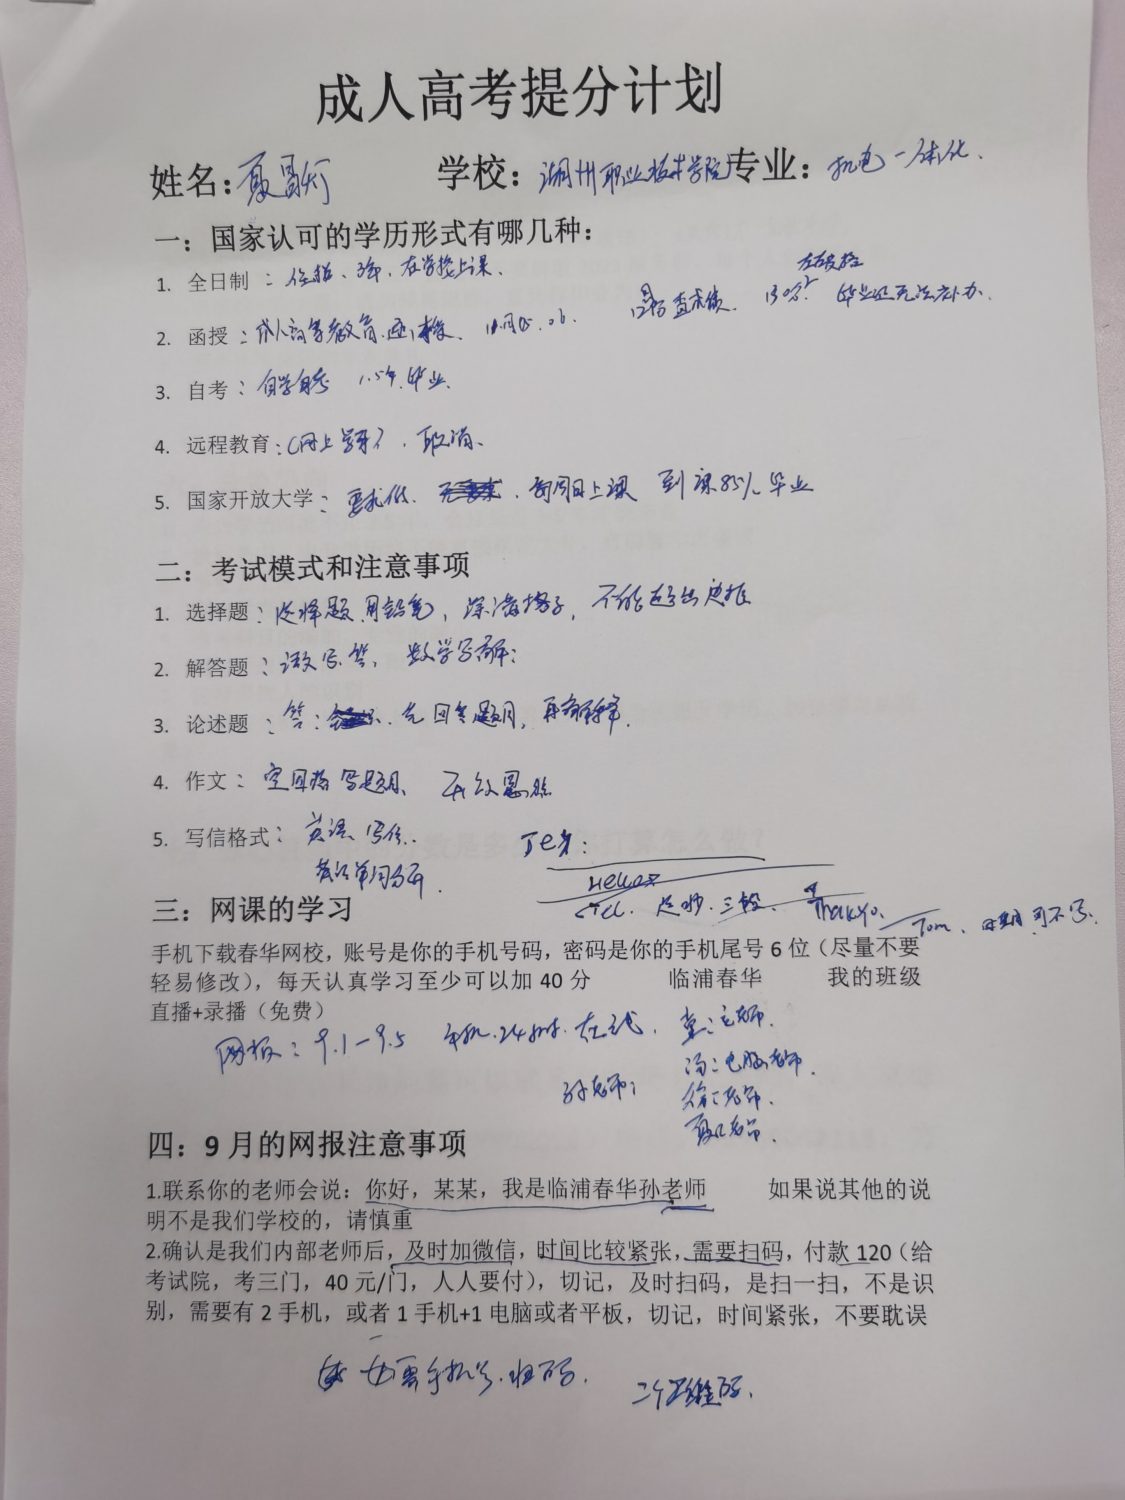 成人高考提分计划
姓名：夏 学校：湖州职业技术学院 专业：机电一体化.
一：国家认可的学历形式有哪几种：
1. 全日制：在学校上课、
毕业证无法补办.
2. 函授：成人高等教育.函授、
3. 自考：自学自考 1.5年.毕业.
4. 远程教育：(网上学习)、取消、
5. 国家开放大学：要求低. 每周日上课 到课85% 毕业
二：考试模式和注意事项
1. 选择题：选择题.用铅笔，涂满格子，不能超出边框
2. 解答题：语文写.答、数学写解：
3. 论述题：答：先回答题目，再解释.
4. 作文：空四格写题目、
5. 写信格式：英语、写信.
英语单词分开.
Hello
Tel. 三段、
Tom、日期可不写.
三：网课的学习
手机下载春华网校，账号是你的手机号码，密码是你的手机尾号 6 位（尽量不要
轻易修改），每天认真学习至少可以加 40 分 临浦春华 我的班级
直播+录播（免费）
网报：9.1-9.5 手机.24小时.在线.
孙老师：
冯：电脑老师.
徐：老师.
夏：老师.
四：9 月的网报注意事项
1.联系你的老师会说：你好，某某，我是临浦春华孙老师 如果说其他的说
明不是我们学校的，请慎重
2.确认是我们内部老师后，及时加微信，时间比较紧张，需要扫码，付款 120（给
考试院，考三门，40 元/门，人人要付），切记，及时扫码，是扫一扫，不是识
别，需要有 2 手机，或者 1 手机+1 电脑或者平板，切记，时间紧张，不要耽误
手机号.
二个二维码.